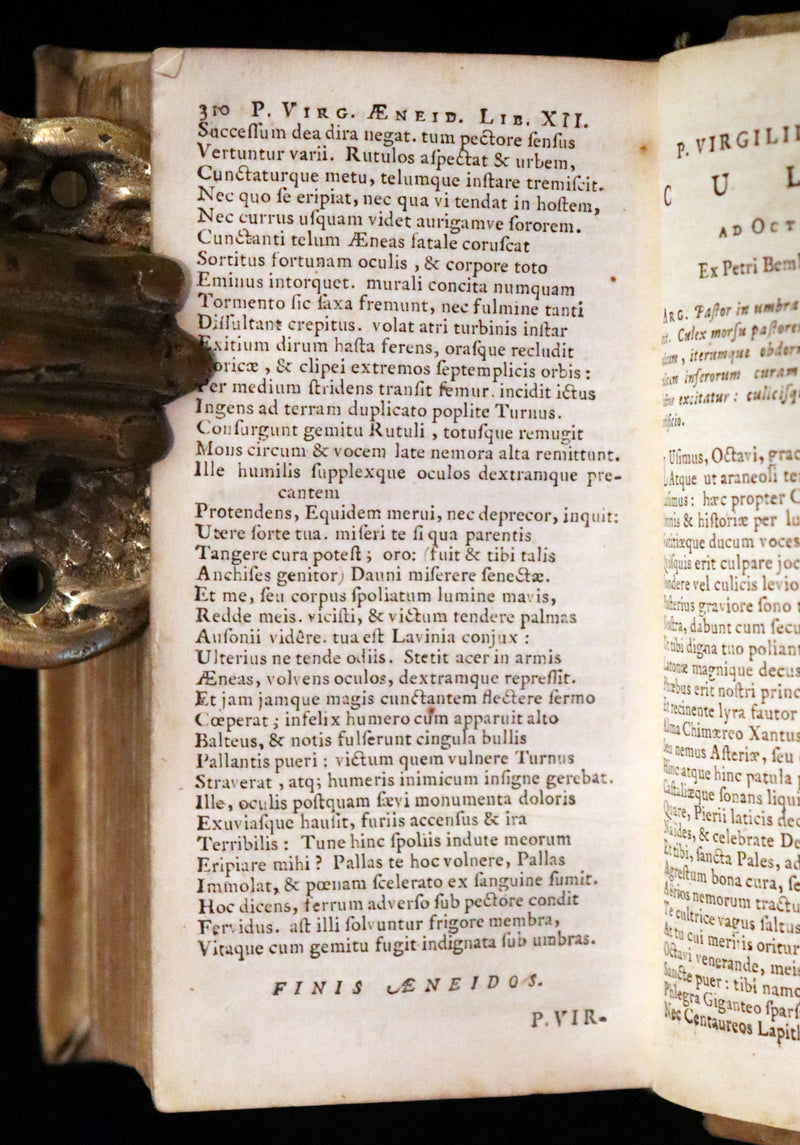 310 P. VIRG. ÆNEID. LIB. XII.
Succeſſum dea dira negat. tum pectore ſenſus
Vertuntur varii. Rutulos aſpectat & urbem,
Cunctaturque metu, telumque inſtare tremiſcit.
Nec quo ſe eripiat, nec qua vi tendat in hoſtem,
Nec currus uſquam videt aurigamve ſororem.
Cunctanti telum Æneas fatale coruſcat
Sortitus fortunam oculis, & corpore toto
Eminus intorquet. murali concita numquam
Tormento ſic ſaxa fremunt, nec fulmine tanti
Diſſultant crepitus. volat atri turbinis inſtar
Exitium dirum haſta ferens, oraſque recludit
Loricæ, & clipei extremos ſeptemplicis orbis:
Per medium ſtridens tranſit femur. incidit ictus
Ingens ad terram duplicato poplite Turnus.
Conſurgunt gemitu Rutuli, totuſque remugit
Mons circum & vocem late nemora alta remittunt.
Ille humilis ſupplexque oculos dextramque pre-
cantem
Protendens, Equidem merui, nec deprecor, inquit:
Utere ſorte tua. miſeri te ſi qua parentis
Tangere cura poteſt; oro: (fuit & tibi talis
Anchiſes genitor) Dauni miſerere ſenectæ.
Et me, ſeu corpus ſpoliatum lumine mavis,
Redde meis. viciſti, & victum tendere palmas
Auſonii vidêre. tua eſt Lavinia conjux:
Ulterius ne tende odiis. Stetit acer in armis
Æneas, volvens oculos, dextramque repreſſit.
Et jam jamque magis cunctantem flectere ſermo
Cœperat; infelix humero cum apparuit alto
Balteus, & notis fulſerunt cingula bullis
Pallantis pueri: victum quem vulnere Turnus
Straverat, atq; humeris inimicum inſigne gerebat.
Ille, oculis poſtquam ſævi monumenta doloris
Exuviaſque hauſit, furiis accenſus & ira
Terribilis: Tune hinc ſpoliis indute meorum
Eripiare mihi? Pallas te hoc volnere, Pallas
Immolat, & pœnam ſcelerato ex ſanguine ſumit.
Hoc dicens, ferrum adverſo ſub pectore condit
Fervidus. aſt illi ſolvuntur frigore membra,
Vitaque cum gemitu fugit indignata ſub umbras.
FINIS ÆNEIDOS.
P. VIR-
P. VIRGILII
C U L
AD OCT
Ex Petri Bemb
ARG. Paſtor in umbra
Culex morſu paſtorem
iterumque obdorm
inferorum curam
excitatur: culiciſq
Luſimus, Octavi, grac
Atque ut araneoli te
hæc propter C
& hiſtoriæ per lu
ducum voces
erit culpare joc
vel culicis levio
graviore ſono t
dabunt cum ſecu
tibi digna tuo poliant
magnique decus
erit noſtri princ
recinente lyra fautor
Chimæreo Xantus
nemus Aſteriæ, ſeu
atque hinc patula p
ſonans liqui
Quare, Pierii laticis dec
Naides, & celebrate De
Et tibi, ſancta Pales, ad
Agreſtum bona cura, ſe
Aerios nemorum tractu
Te cultrice vagus ſaltus
At tu cui meritis oritur
Octavi venerande, meis
Sancte puer: tibi namq
Phlegra Giganteo ſparſ
Nec Centaureos Lapith